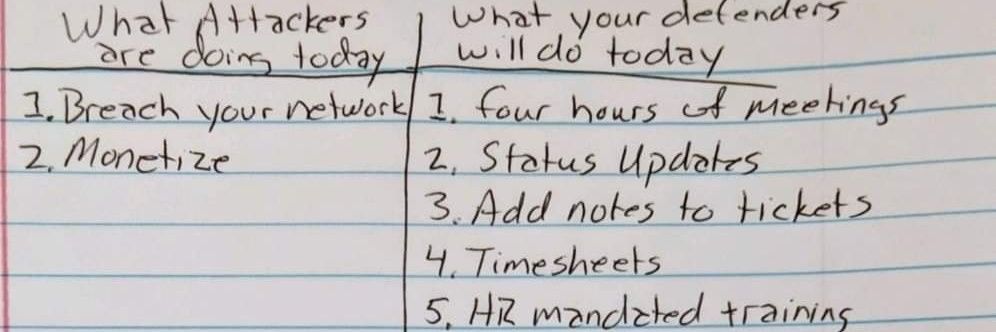 What Attackers
are doing today
1. Breach your network
2. Monetize
What your defenders
will do today
1. four hours of meetings
2. Status Updates
3. Add notes to tickets
4. Timesheets
5. HR mandated training